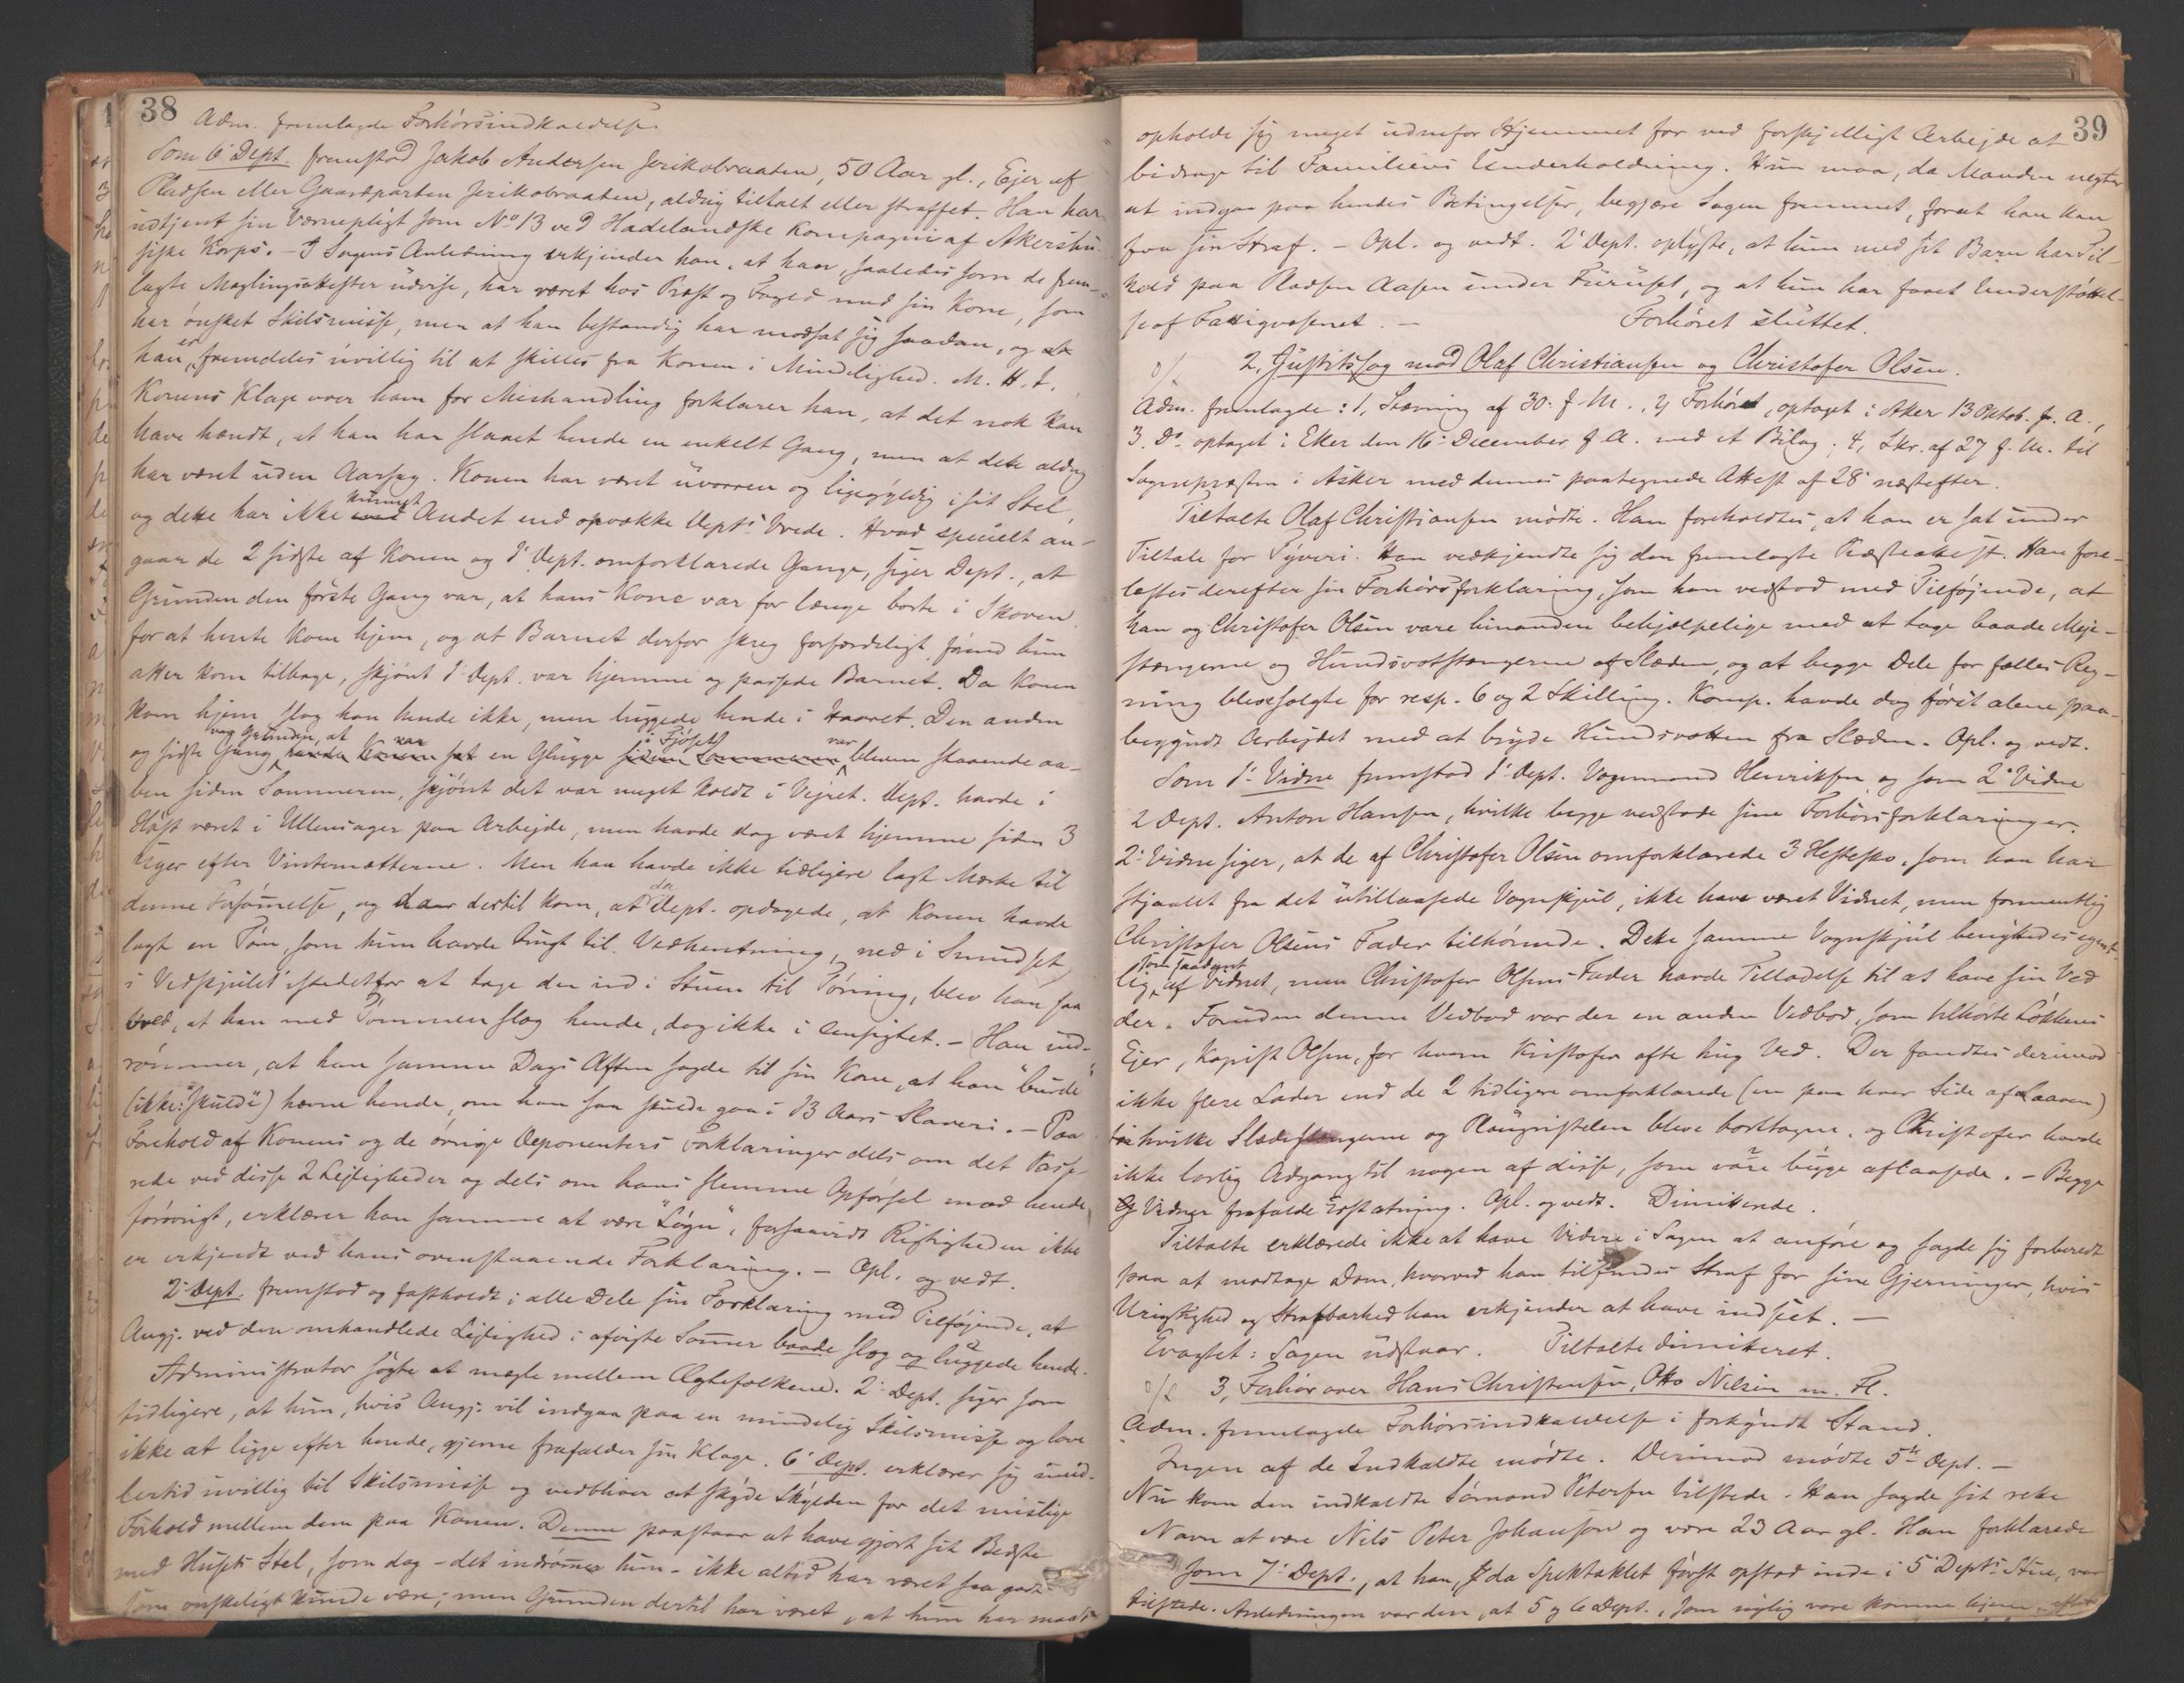 38
Adm. fremlagde Forhörsindkaldelse.
Som 6' Dept. fremstod Jakob Andersen Jerikobraaten, 50 Aar gl., Ejer af
Pladsen eller Gaardparten Jerikobraaten, aldrig tiltalt eller straffet. Han har
udtjent sin Værnepligt som No 13 ved Hadelandske Kompagni af Akershu-
siske Korps. - I Sagens Anledning erkjender han, at han, saaledes som de frem-
lagte Mæglingsattester udvise, har været hos Præst og Foged med sin Kone, som
har önsket Skilsmisse, men at han bestandig har modsat sig saadan, og at
han er fremdeles uvillig til at skilles fra Konen i Mindelighed. M. H. t.
Konens Klage over ham for Mishandling forklarer han, at det nok kan
have hændt, at han har slaaet hende en enkelt Gang, men at dette aldrig
har været uden Aarsag. Konen har været uvorren og ligegyldig i sit Stel,
og dette har ikke kunnet Andet end opvække Depts Vrede. Hvad specielt an-
gaar de 2 sidste af Konen og 1' Dept. omforklarede Gange, siger Dept., at
Grunden den förste Gang var, at hans Kone var for længe borte i Skoven
for at hente Kom hjem, og at Barnet derfor skreg forfærdeligt, förend hun
atter kom tilbage, skjönt 1' Dept. var hjemme og passede Barnet. Da Konen
kom hjem, slog han hende ikke, men luggede hende i Haaret. Den anden
og sidste Gang var Grunden, at en Glugge i Fjöset var bleven staaende aa-
ben siden Sommeren, skjönt det var meget koldt i Vejret. Dept. havde i
Höst været i Ullensager paa Arbejde, men havde dog været hjemme siden 3
Uger efter Vinternætterne. Men han havde ikke tidligere lagt Mærke til
denne Forsömmelse, og da dertil kom, at da Dept. opdagede, at Konen havde
lagt en Töm, som hun havde brugt til Vedhentning, ned i Smudset
i Vedskjulet istedetfor at tage den ind i Stuen til Törring, blev han saa
vred, at han med Tömmen slog hende, dog ikke i Ansigtet. - Han ind-
römmer, at han samme Dags Aften sagde til sin Kone, at han "burde"
(ikke: "skulde") hævne hende, om han saa skulde gaa i 13 Aars Slaveri. - Paa
Forehold af Konens og de övrige Deponenters Forklaringer dels om det Passe-
rede ved disse 2 Lejligheder og dels om hans slemme Opförsel mod hende
forövrigt, erklærer han samme at være "Lögn", forsaavidt Rigtigheden ikke
er erkjendt ved hans ovenstaaende Forklaring. - Opl. og vedt.
2' Dept. fremstod og fastholdt i alle Dele sin Forklaring med Tilföjende, at
Angj. ved den omhandlede Lejlighed i afvigte Sommer baade slog og luggede hende.
Administrator sögte at mægle mellem Ægtefolkene. 2' Dept. siger som
tidligere, at hun, hvis Angj. vil indgaa paa en mindelig Skilsmisse og love
ikke at ligge efter hende, gjerne frafalder sin Klage. 6' Dept. erklærer sig imid-
lertid uvillig til Skilsmisse og vedbliver at skyde Skylden for det mislige
Forhold mellem dem paa Konen. Denne paastaar at have gjort sit Bedste
med Husets Stel, som dog - det indrömmer hun - ikke altid har været saa godt
som önskeligt kunde være; men Grunden dertil har været, at hun har maatt
39
opholde sig meget udenfor Hjemmet for ved forskjelligt Arbejde at
bidrage til Familiens Underholdning. Hun maa, da Manden negter
at indgaa paa hendes Betingelser, begjære Sagen fremmet, forat han kan
faa sin Straf. - Opl. og vedt. 2' Dept. oplyste, at hun med sit Barn har Til-
hold paa Pladsen Aasen under Furuset, og at hun har faaet Understöttel-
se af Fattigvæsenet. - Forhöret sluttet.
2, Justitssag mod Olaf Christiansen og Christofer Olsen.
Adm. fremlagde: 1, Stævning af 30. f. M., 2, Forhöret, optaget i Aker 13 Oktob. f. A.,
3. Do optaget i Eker den 16' December f. A. med et Bilag; 4, Skr. af 27 f. M. til
Sognepræsten i Asker med dennes paategnede Attest af 28' næstefter.
Tiltalte Olaf Christiansen mödte. Han foreholdtes, at han er sat under
Tiltale for Tyveri. Han vedkjendte sig den fremlagte Præsteattest. Han fore-
læstes derefter sin Forhörsforklaring, som han vedstod med Tilföjende, at
han og Christofer Olsen vare hinanden behjælpelige med at tage baade Meje-
stængerne og Hundsvotstængerne af Slæden, og at begge Dele for fælles Reg-
ning bleve solgte for resp. 6 og 2 Skilling. Komp. havde dog först alene paa-
begyndt Arbejdet med at bryde Hundsvotten fra Slæden. Opl. og vedt.
Som 1' Vidne fremstod 1' Dept. Vognmand Henriksen og som 2' Vidne
2 Dept. Anton Hansen, hvilke begge vedstode sine Forhörsforklaringer.
2' Vidne siger, at de af Christofer Olsen omforklarede 3 Hestesko, som han har
stjaalet fra det utillaasede Vognskjul, ikke have været Vidnet, men formentlig
Christofer Olsens Fader tilhörende. Dette samme Vognskjul benyttedes egent-
lig som saadant af Vidnet, men Christofer Olsens Fader havde Tilladelse til at have sin Ved
der. Foruden denne Vedbod var der en anden Vedbod, som tilhörte Lökkens
Ejer, Kopist Olsen, for hvem Kristofer ofte hug Ved. Der fandtes derimod
ikke flere Lader end de 2 tidligere omforklarede (en paa hver Side af Laaven)
fra hvilke Slædestængerne og Plaugristelen bleve borttagne, og Christofer havde
ikke lovlig Adgang til nogen af disse, som vare begge aflaasede. - Begge
Vidner frafaldt Erstatning. Opl. og vedt. Dimitterede.
Tiltalte erklærede ikke at have Videre i Sagen at anföre og sagde sig forberedt
paa at modtage Dom, hvorved han tilfindes Straf for sine Gjerninger, hvis
Urigtighed og Strafbarhed han erkjender at have indseet. -
Eragtet: Sagen udstaar. Tiltalte dimitteret.
3, Forhör over Hans Christensen, Otto Nilsen m. Fl.
Adm. fremlagde Forhörsindkaldelse i forkyndt Stand.
Ingen af de Indkaldte mödte. Derimod mödte 5te Dept. -
Nu kom den indkaldte Sömand Petersen tilstede. Han sagde sit rette
Navn at være Nils Peter Johanson og være 23 Aar gl. Han forklarede
Som 7' Dept., at han, da Spektaklet först opstod inde i 5' Depts Stue, var
tilstede. Anledningen var den, at 5 og 6 Dept., som nylig vare komne hjem efter